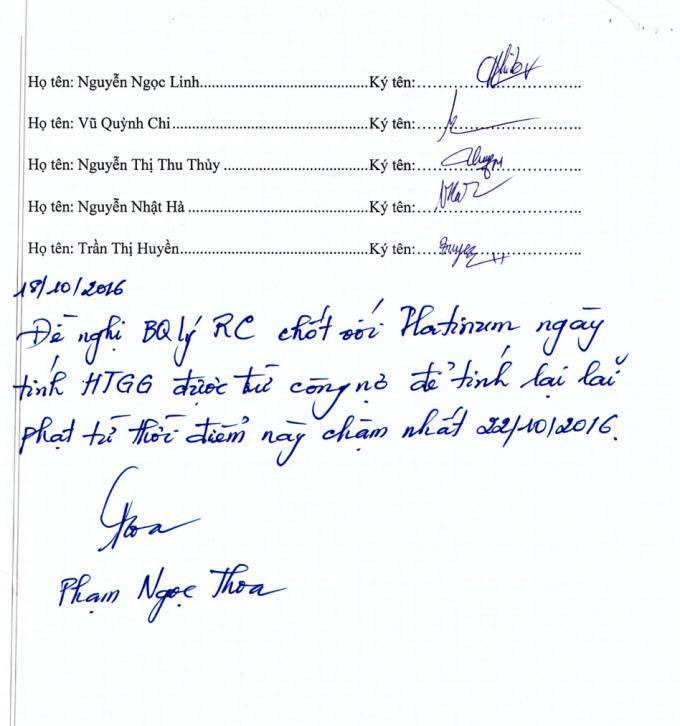 Họ tên: Nguyễn Ngọc Linh............................................Ký tên:............................................
Họ tên: Vũ Quỳnh Chi....................................................Ký tên:............................................
Họ tên: Nguyễn Thị Thu Thủy ......................................Ký tên:............................................
Họ tên: Nguyễn Nhật Hà ...............................................Ký tên:............................................
Họ tên: Trần Thị Huyền.................................................Ký tên:............................................
18/10/2016
Đề nghị BQlý RC chốt với Platinum ngày
tính HTGG được trừ công nợ để tính lại lãi
phạt từ thời điểm này chậm nhất 22/10/2016.
Thoa
Phạm Ngọc Thoa